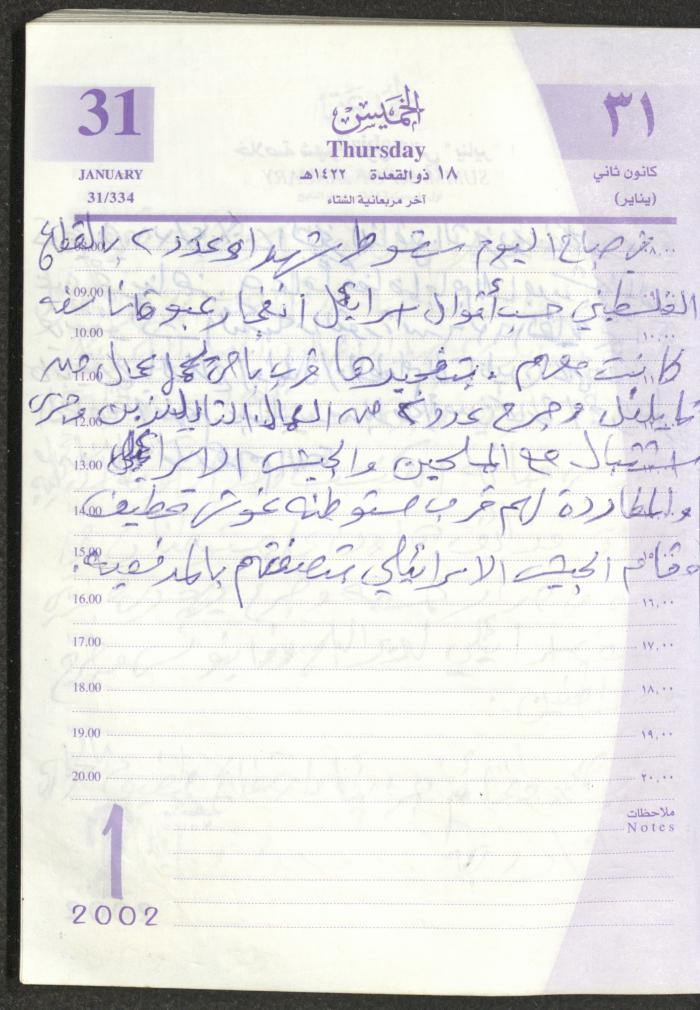 31
الخميس
٣١
Thursday
JANUARY
١٨ ذوالقعدة ١٤٢٢هـ
كانون ثاني
31/334
آخر مربعانية الشتاء
(يناير)
في صباح اليوم سقوط شهداء وعدد ٢ بالقطاع
الفلسطيني حسب أقوال اسرائيل انفجار عبوة ناسفة
كانت معهم . بتفجيدها قرب باص عمال من
تايلند وجرح عدد ٢ من العمال التايلنديين وجرى
اشتباك مع المسلحين والجيش الاسرائيلي
والمطاردة لهم قرب مستوطنة غوش قطيف
وقام الجيش الاسرائيلي بقصفهم بالمدفعية.
08.00 ٨,٠٠
09.00
10.00 ١٠,٠٠
11.00
12.00
13.00
14.00
15.00
16.00 ١٦,٠٠
17.00 ١٧,٠٠
18.00 ١٨,٠٠
19.00 ١٩,٠٠
20.00 ٢٠,٠٠
ملاحظات
Notes
1
2002